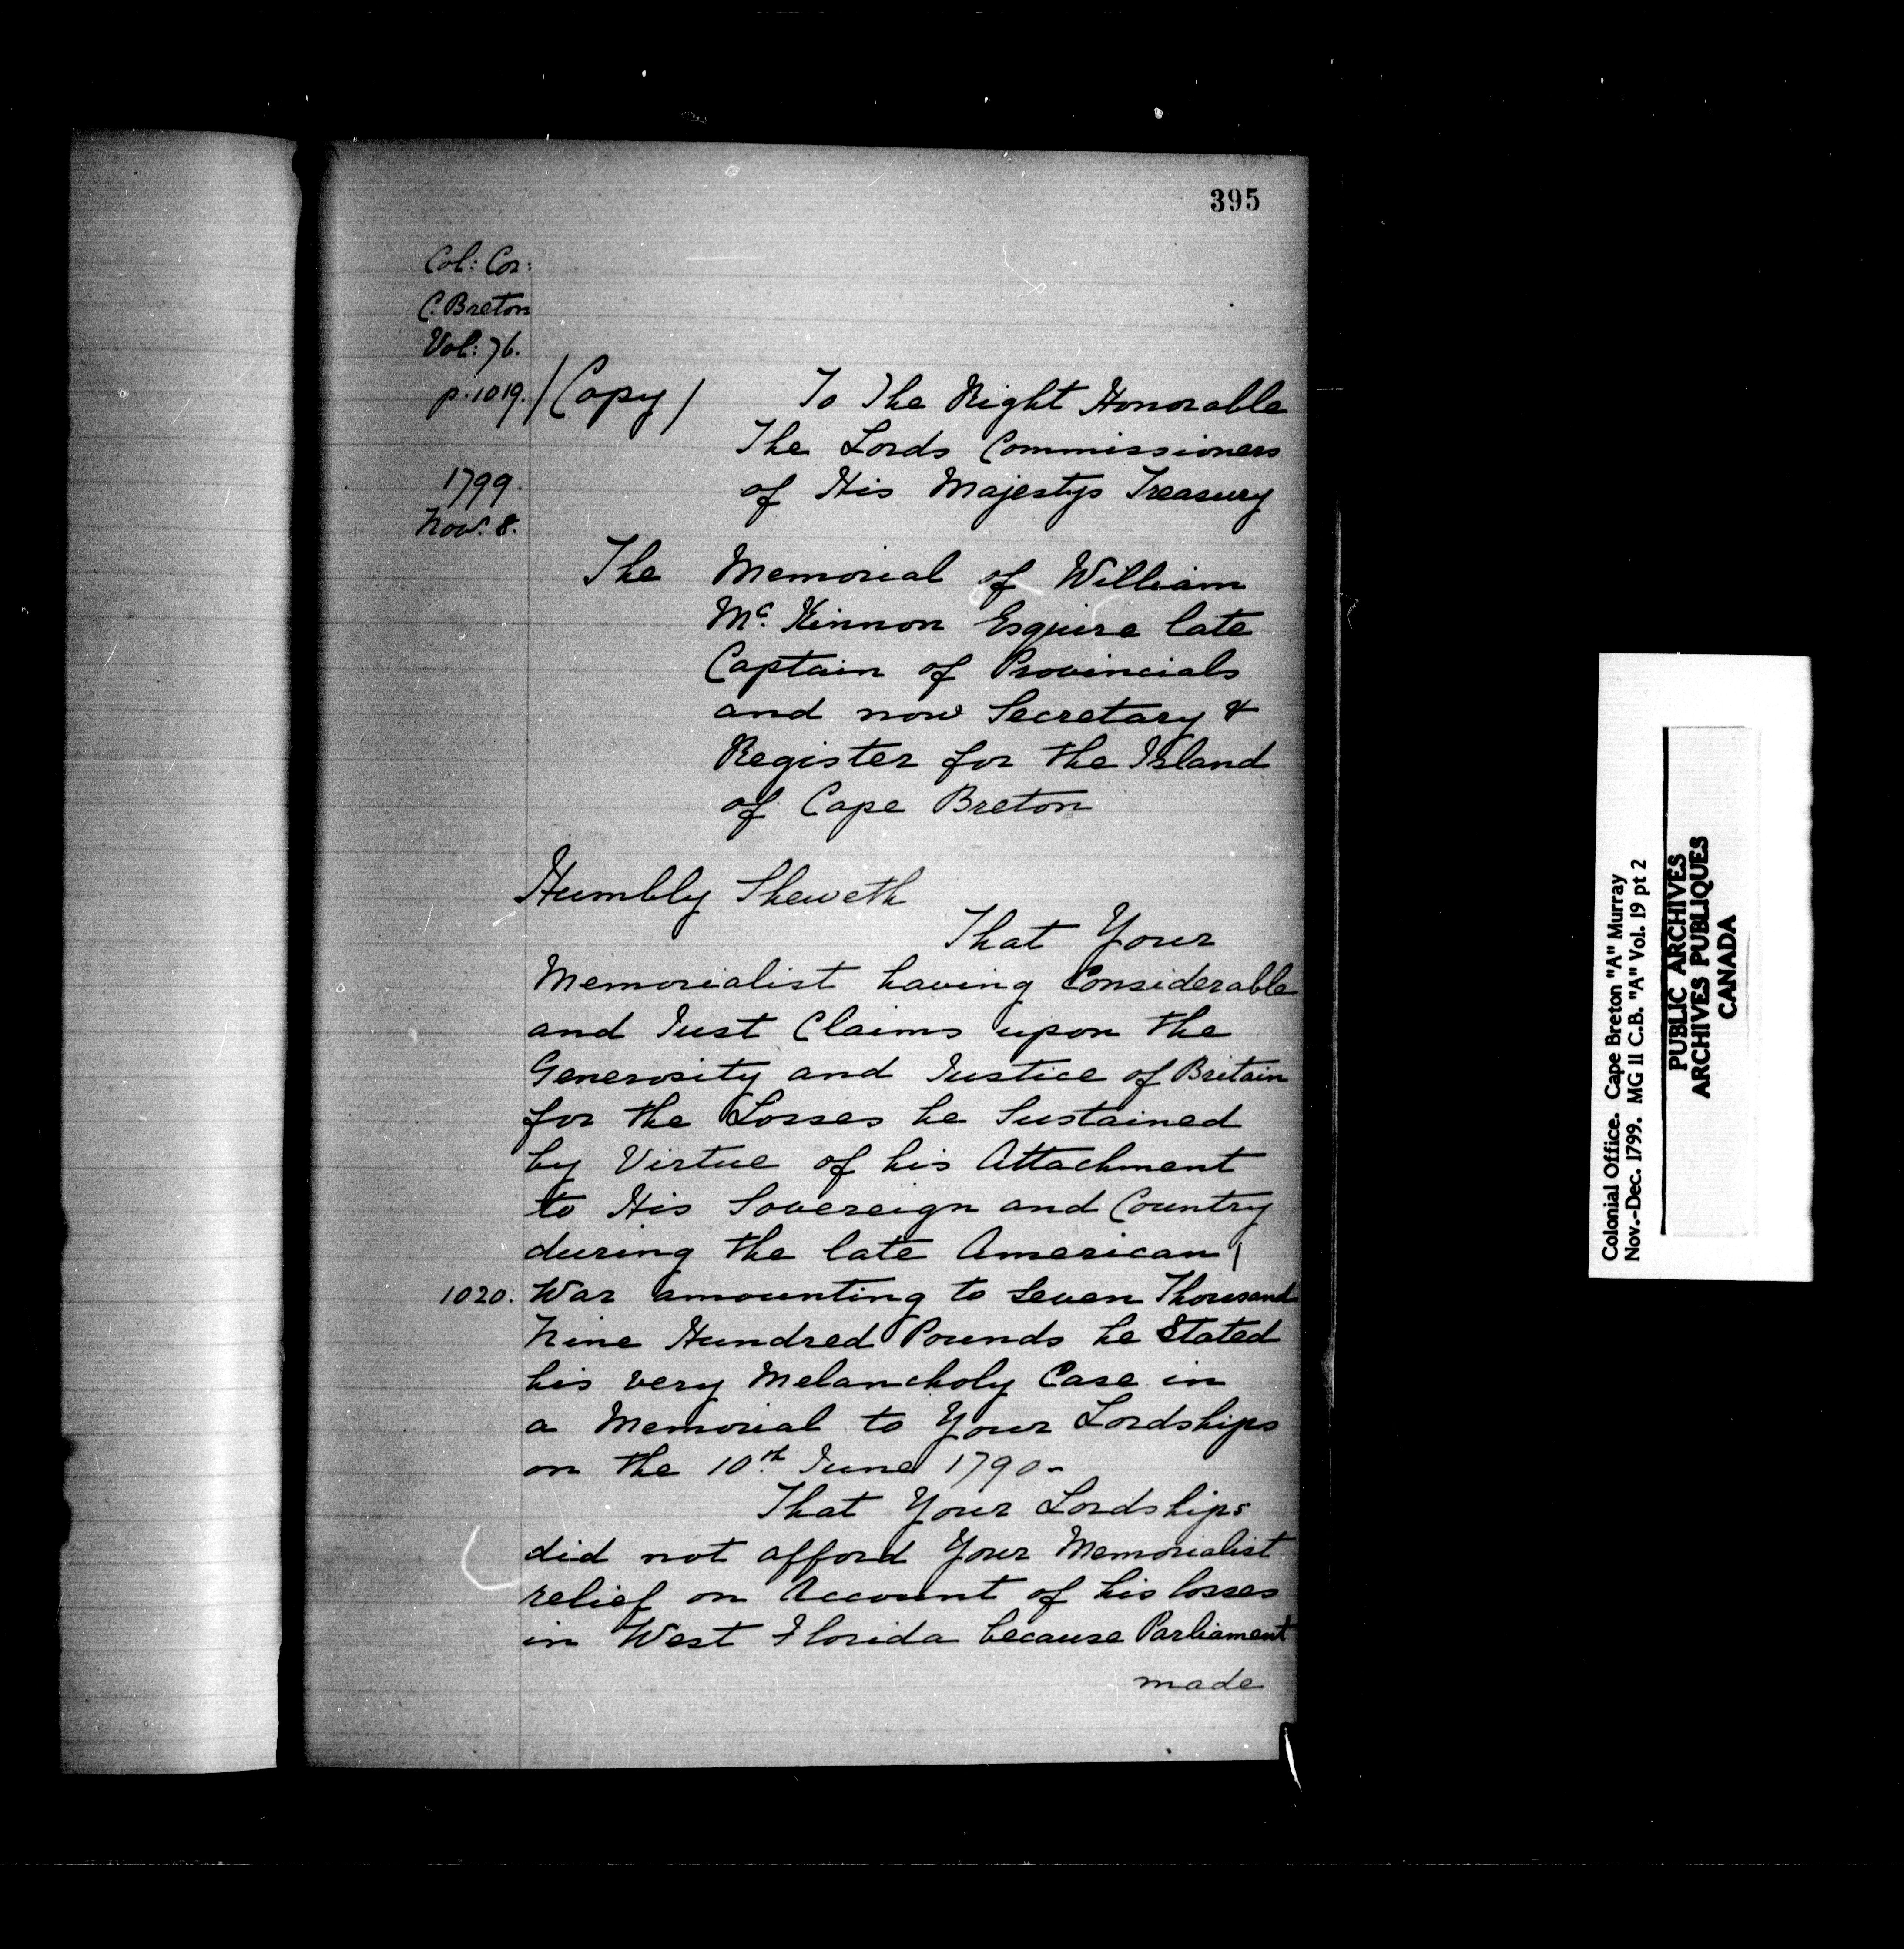 395
Col: Cor:
C. Breton
Vol: 76.
p. 1019. / (Copy) / To The Right Honorable
The Lords Commissioners
1799. of His Majestys Treasury
Nov. 8.
The Memorial of William
Mc. Kinnon Esquire late
Captain of Provincials
and now Secretary &
Register for the Island
of Cape Breton
Humbly Sheweth
That Your
Memorialist having Considerable
and Just Claims upon the
Generosity and Justice of Britain
for the Losses he Sustained
by Virtue of his Attachment
to His Sovereign and Country
during the late American /
1020. War amounting to Seven Thousand
Nine Hundred Pounds he Stated
his very Melancholy Case in
a Memorial to Your Lordships
on the 10th June 1790-
That Your Lordships
did not afford Your Memorialist
relief on Account of his losses
in West Florida because Parliament
made
Colonial Office. Cape Breton "A" Murray
Nov.-Dec. 1799. MG 11 C.B. "A" Vol. 19 pt 2
PUBLIC ARCHIVES
ARCHIVES PUBLIQUES
CANADA